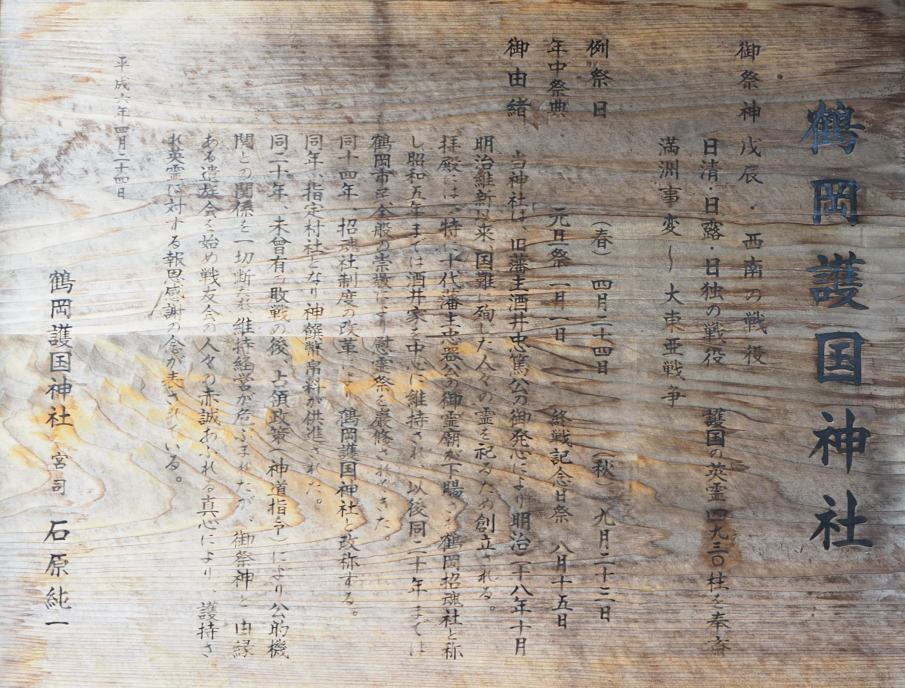 鶴岡護国神社
御祭神 戊辰・西南の戦役
日清・日露・日独の戦役 護国の英霊四九三〇柱を奉斎
満洲事変～大東亜戦争
例祭日 (春) 四月二十四日 (秋) 九月二十三日
年中祭典 元旦祭 一月一日 終戦記念日祭 八月十五日
御由緒 当神社は、旧藩主酒井忠篤公の御発心により明治十八年十月
明治維新以来、国難に殉じた人々の霊を祀るため創立される。
拝殿には、特に十代藩主忠器公の御霊廟が下賜され、鶴岡招魂社と称
し昭和五年までは酒井家を中心に維持され、以後同二十年までは
鶴岡市民全般の崇敬により慰霊祭を厳修されてきた。
同十四年、招魂社制度の改革により鶴岡護国神社と改称する。
同年、指定村社となり神饌幣帛料が供進された。
同二十年、未曾有の敗戦の後、占領政策(神道指令)により公的機
関との関係を一切断たれ、維持経営が危ぶまれたが、御祭神と由縁
ある遺族会を始め戦友会の人々の赤誠あふれる真心により、護持さ
れ英霊に対する報恩感謝の念が表されている。
平成六年四月二十四日
鶴岡護国神社 宮司 石原純一